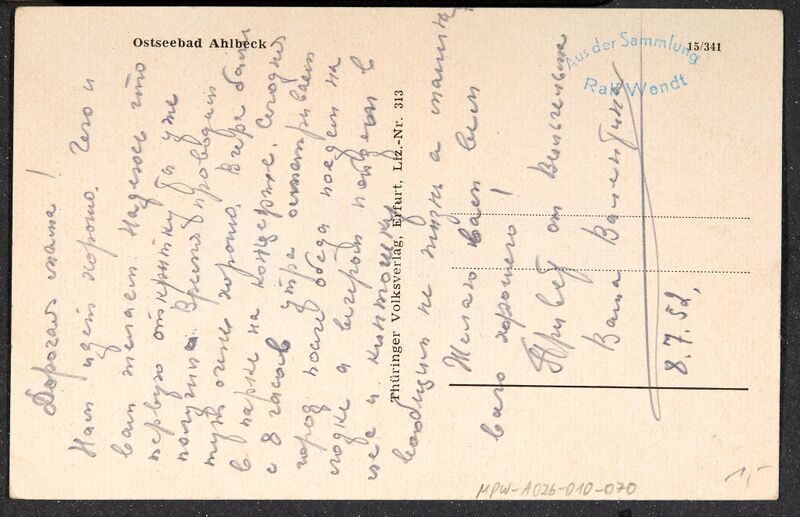 Ostseebad Ahlbeck
15/341
Aus der Sammlung
Ralf Wendt
Thüringer Volksverlag, Erfurt, Liz.-Nr. 313
Дорогая мама!
Нам идет хорошо. Чего и
вам желаем. Надеюсь что
первую открытку ты уже
получила. Время проводим
тут очень хорошо. Вчера были
в парке на концерте. Сегодня
с 8 часов утра осматриваем
город после обеда поедем на
лодке а вечером пойдем в
вообщем не жизнь а малина
Желаю вам всем
всего хорошего!
Привет от Вильгельма
Ваша Валентина
8.7.52.
MPW-A026-010-070
1,-